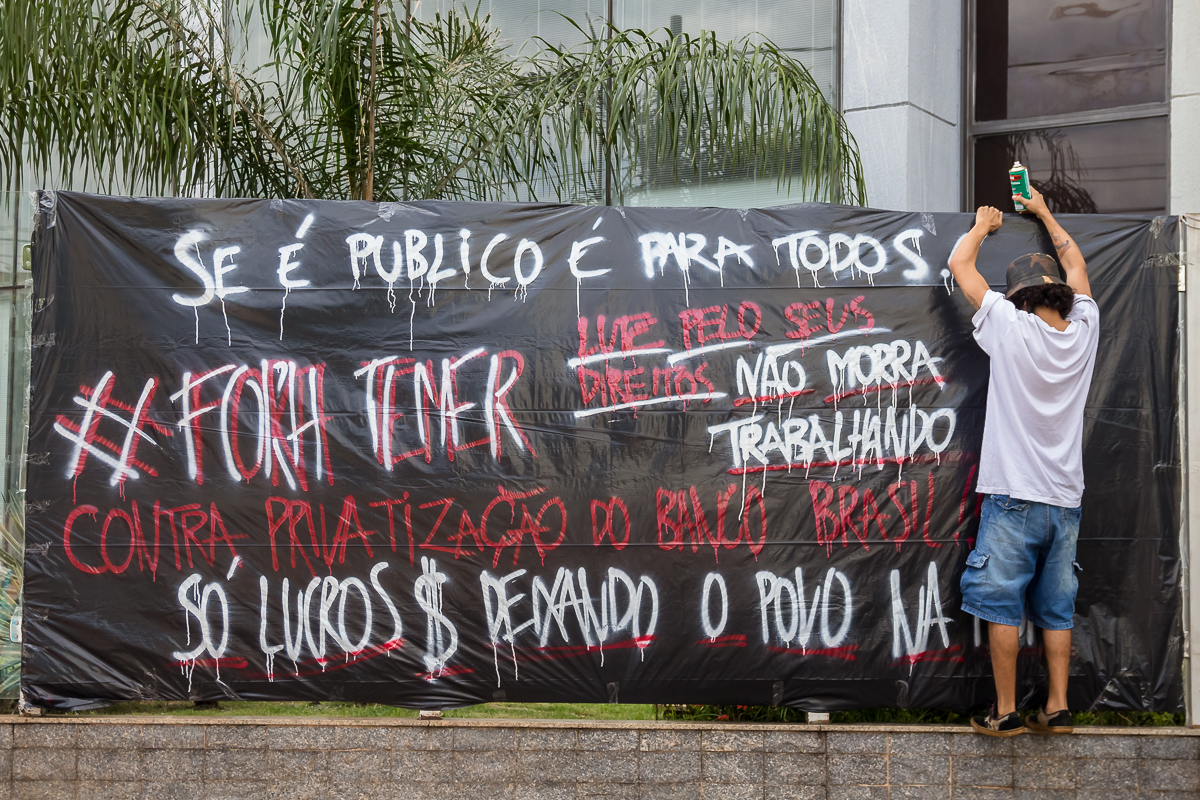 SE É PÚBLICO É PARA TODOS.
LUTE PELO SEUS
DIREITOS NÃO MORRA
TRABALHANDO
#FORA TEMER
CONTRA PRIVATIZAÇÃO DO BANCO BRASIL!
SÓ LUCROS $ DEIXANDO O POVO NA